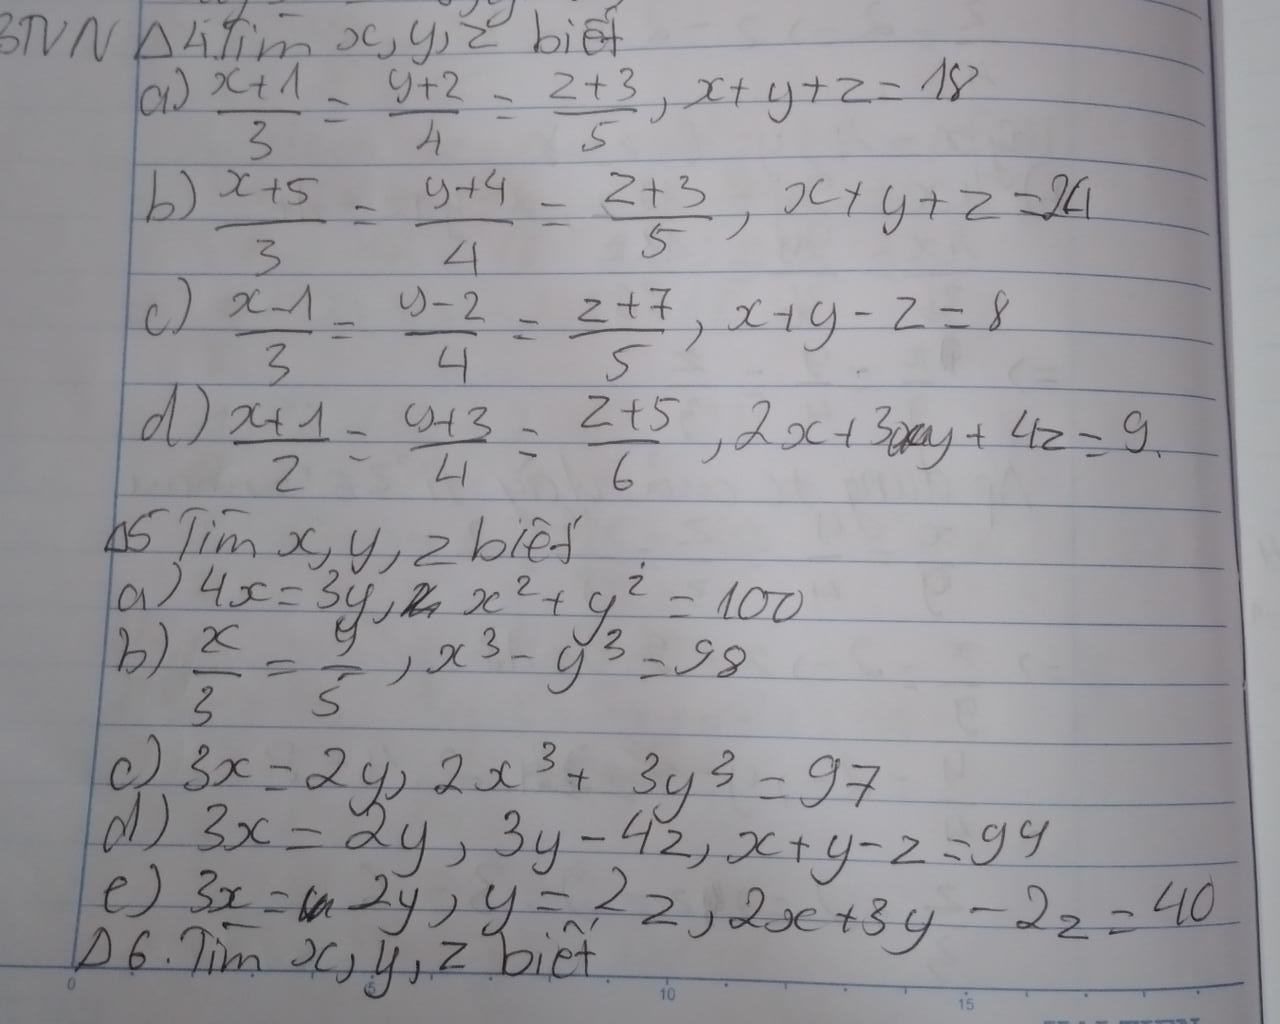 BTVN Δ4. Tìm x, y, z biết
a) (x+1)/3 = (y+2)/4 = (z+3)/5, x+y+z = 18
b) (x+5)/3 = (y+4)/4 = (z+3)/5, x+y+z =24
c) (x-1)/3 = (y-2)/4 = (z+7)/5, x+y-z = 8
d) (x+1)/2 = (y+3)/4 = (z+5)/6, 2x+3y+4z = 9.
Δ5 Tìm x, y, z biết
a) 4x = 3y, x²+y² = 100
b) x/3 = y/5, x³-y³ = 98
c) 3x = 2y, 2x³+ 3y³ = 97
d) 3x = 2y, 3y - 4z, x+y-z =94
e) 3x = 2y, y = 2z, 2x+3y-2z = 40
Δ6. Tìm x, y, z biết
0 5 10 15